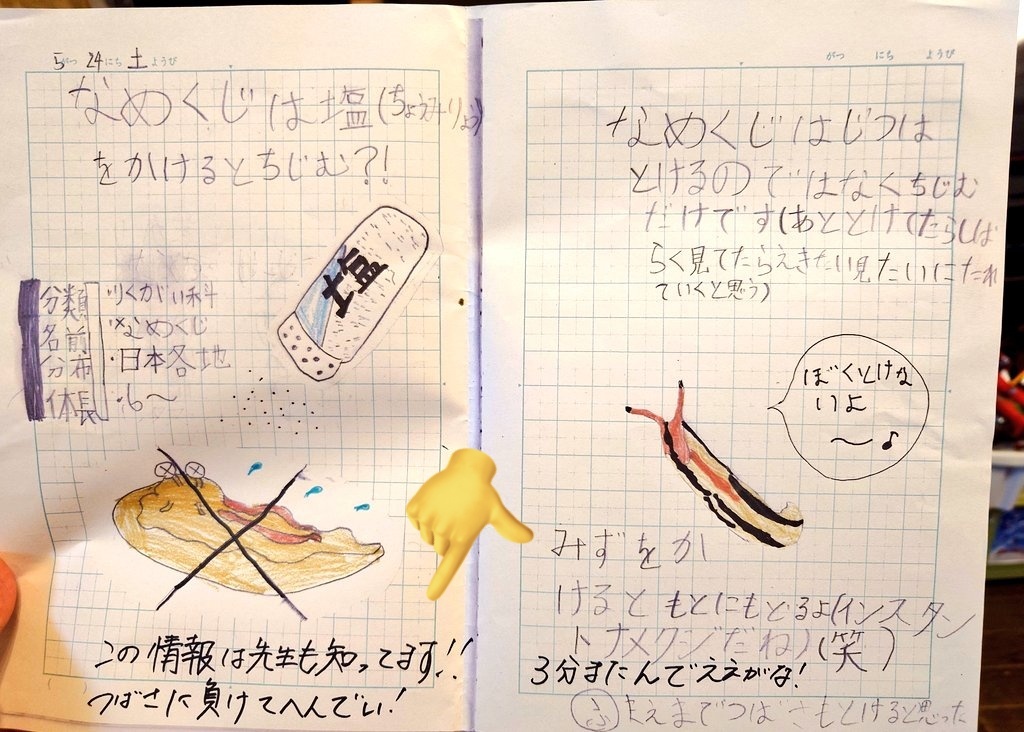 5がつ24にち土ようび
なめくじは塩(ちょうみりょう)
をかけるとちじむ?!
塩
分類 りくがい科
名前 ・なめくじ
分布 ・日本各地
体長 ・6〜
この情報は先生も知ってます!!
つばさに負けてへんでい!
がつ にち ようび
なめくじはじつは
とけるのではなくちじむ
だけです(あととけてたらしば
らく見てたらえきたい見たいにたれ
ていくと思う)
ぼくとけな
いよ
〜♪
みずをか
けるともとにもどるよ(インスタン
トナメクジだね)(笑)
3分またんでええがな!
まえまでつばさもとけると思った